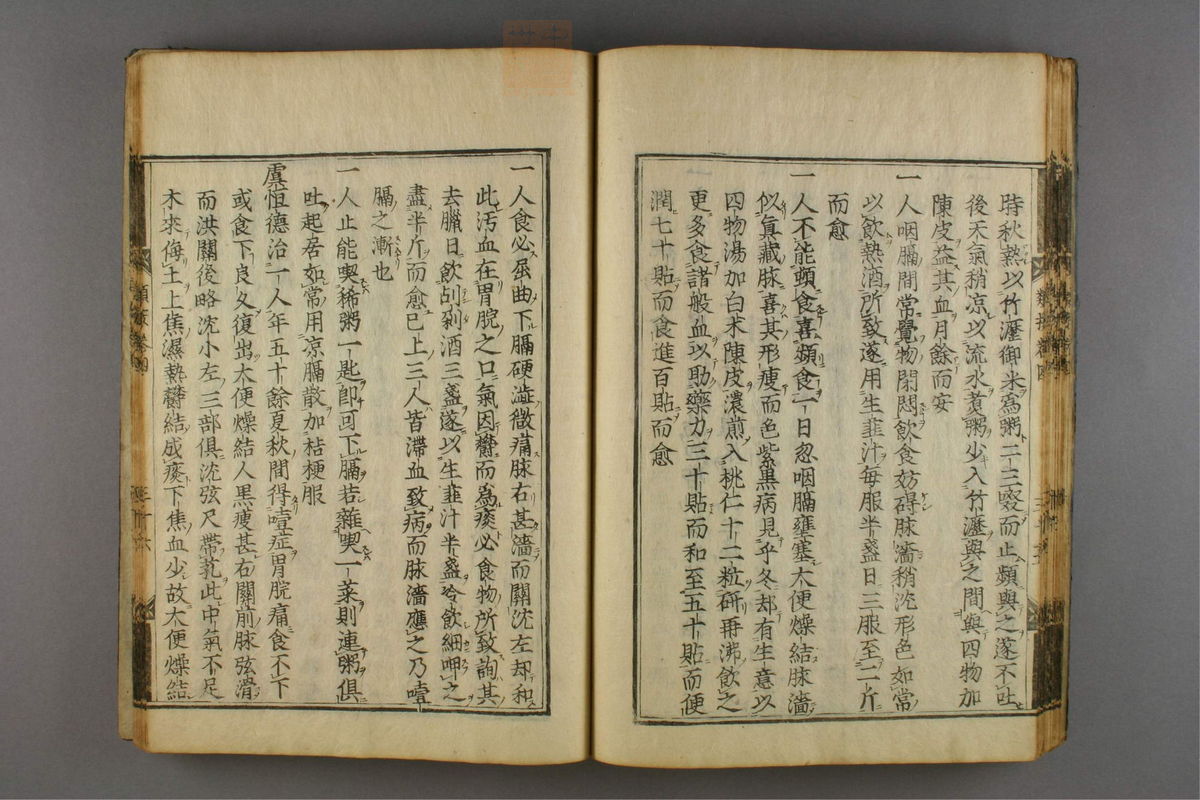 時秋熱以竹瀝御米為粥二三啜而止頻與之遂不吐
後天氣稍凉以流水煑粥少入竹瀝與之間與四物加
陳皮益其血月餘而安
一人咽膈間常覺物閉悶飲食妨碍脉濇稍沈形色如常
以飲熱酒所致遂用生韮汁每服半盞日三服至二斤
而愈
一人不能頓食喜頻食一日忽咽膈壅塞大便燥結脉濇
似真藏脉喜其形瘦而色紫黒病見乎冬却有生意以
四物湯加白朮陳皮濃煎入桃仁十二粒研再沸飲之
更多食諸般血以助藥力三十貼而和至五十貼而便
潤七十貼而食進百貼而愈
一人食必屈曲下膈硬澁微痛脉右甚濇而關沈左却和
此汚血在胃脘之口氣因鬱而為痰必食物所致詢其
去臘日飲刮剁酒三盞遂以生韮汁半盞冷飲細呷之
盡半斤而愈已上三人皆滯血致病而脉濇應之乃噎
膈之漸也
一人止能喫稀粥一匙即可下膈若雜喫一菜則連粥俱
吐起居如常用凉膈散加桔梗服
虞恒德治一人年五十餘夏秋間得噎症胃脘痛食不下
或食下良久復出大便燥結人黒瘦甚右關前脉弦滑
而洪關後略沈小左三部俱沈弦尺帶芤此中氣不足
木來侮土上焦濕熱鬱結成痰下焦血少故大便燥結